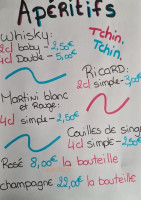 Apéritifs
Whisky:
2cl baby - 2,50€
4cl Double - 5,00€
Tchin,
Tchin,
Ricard:
2cl simple - 3,00€
Martini blanc
et Rouge:
4cl simple - 2,50€
Couilles de singe
4cl simple - 2,50€
Rosé 8,00€ la bouteille
champagne 22,00€ la bouteille